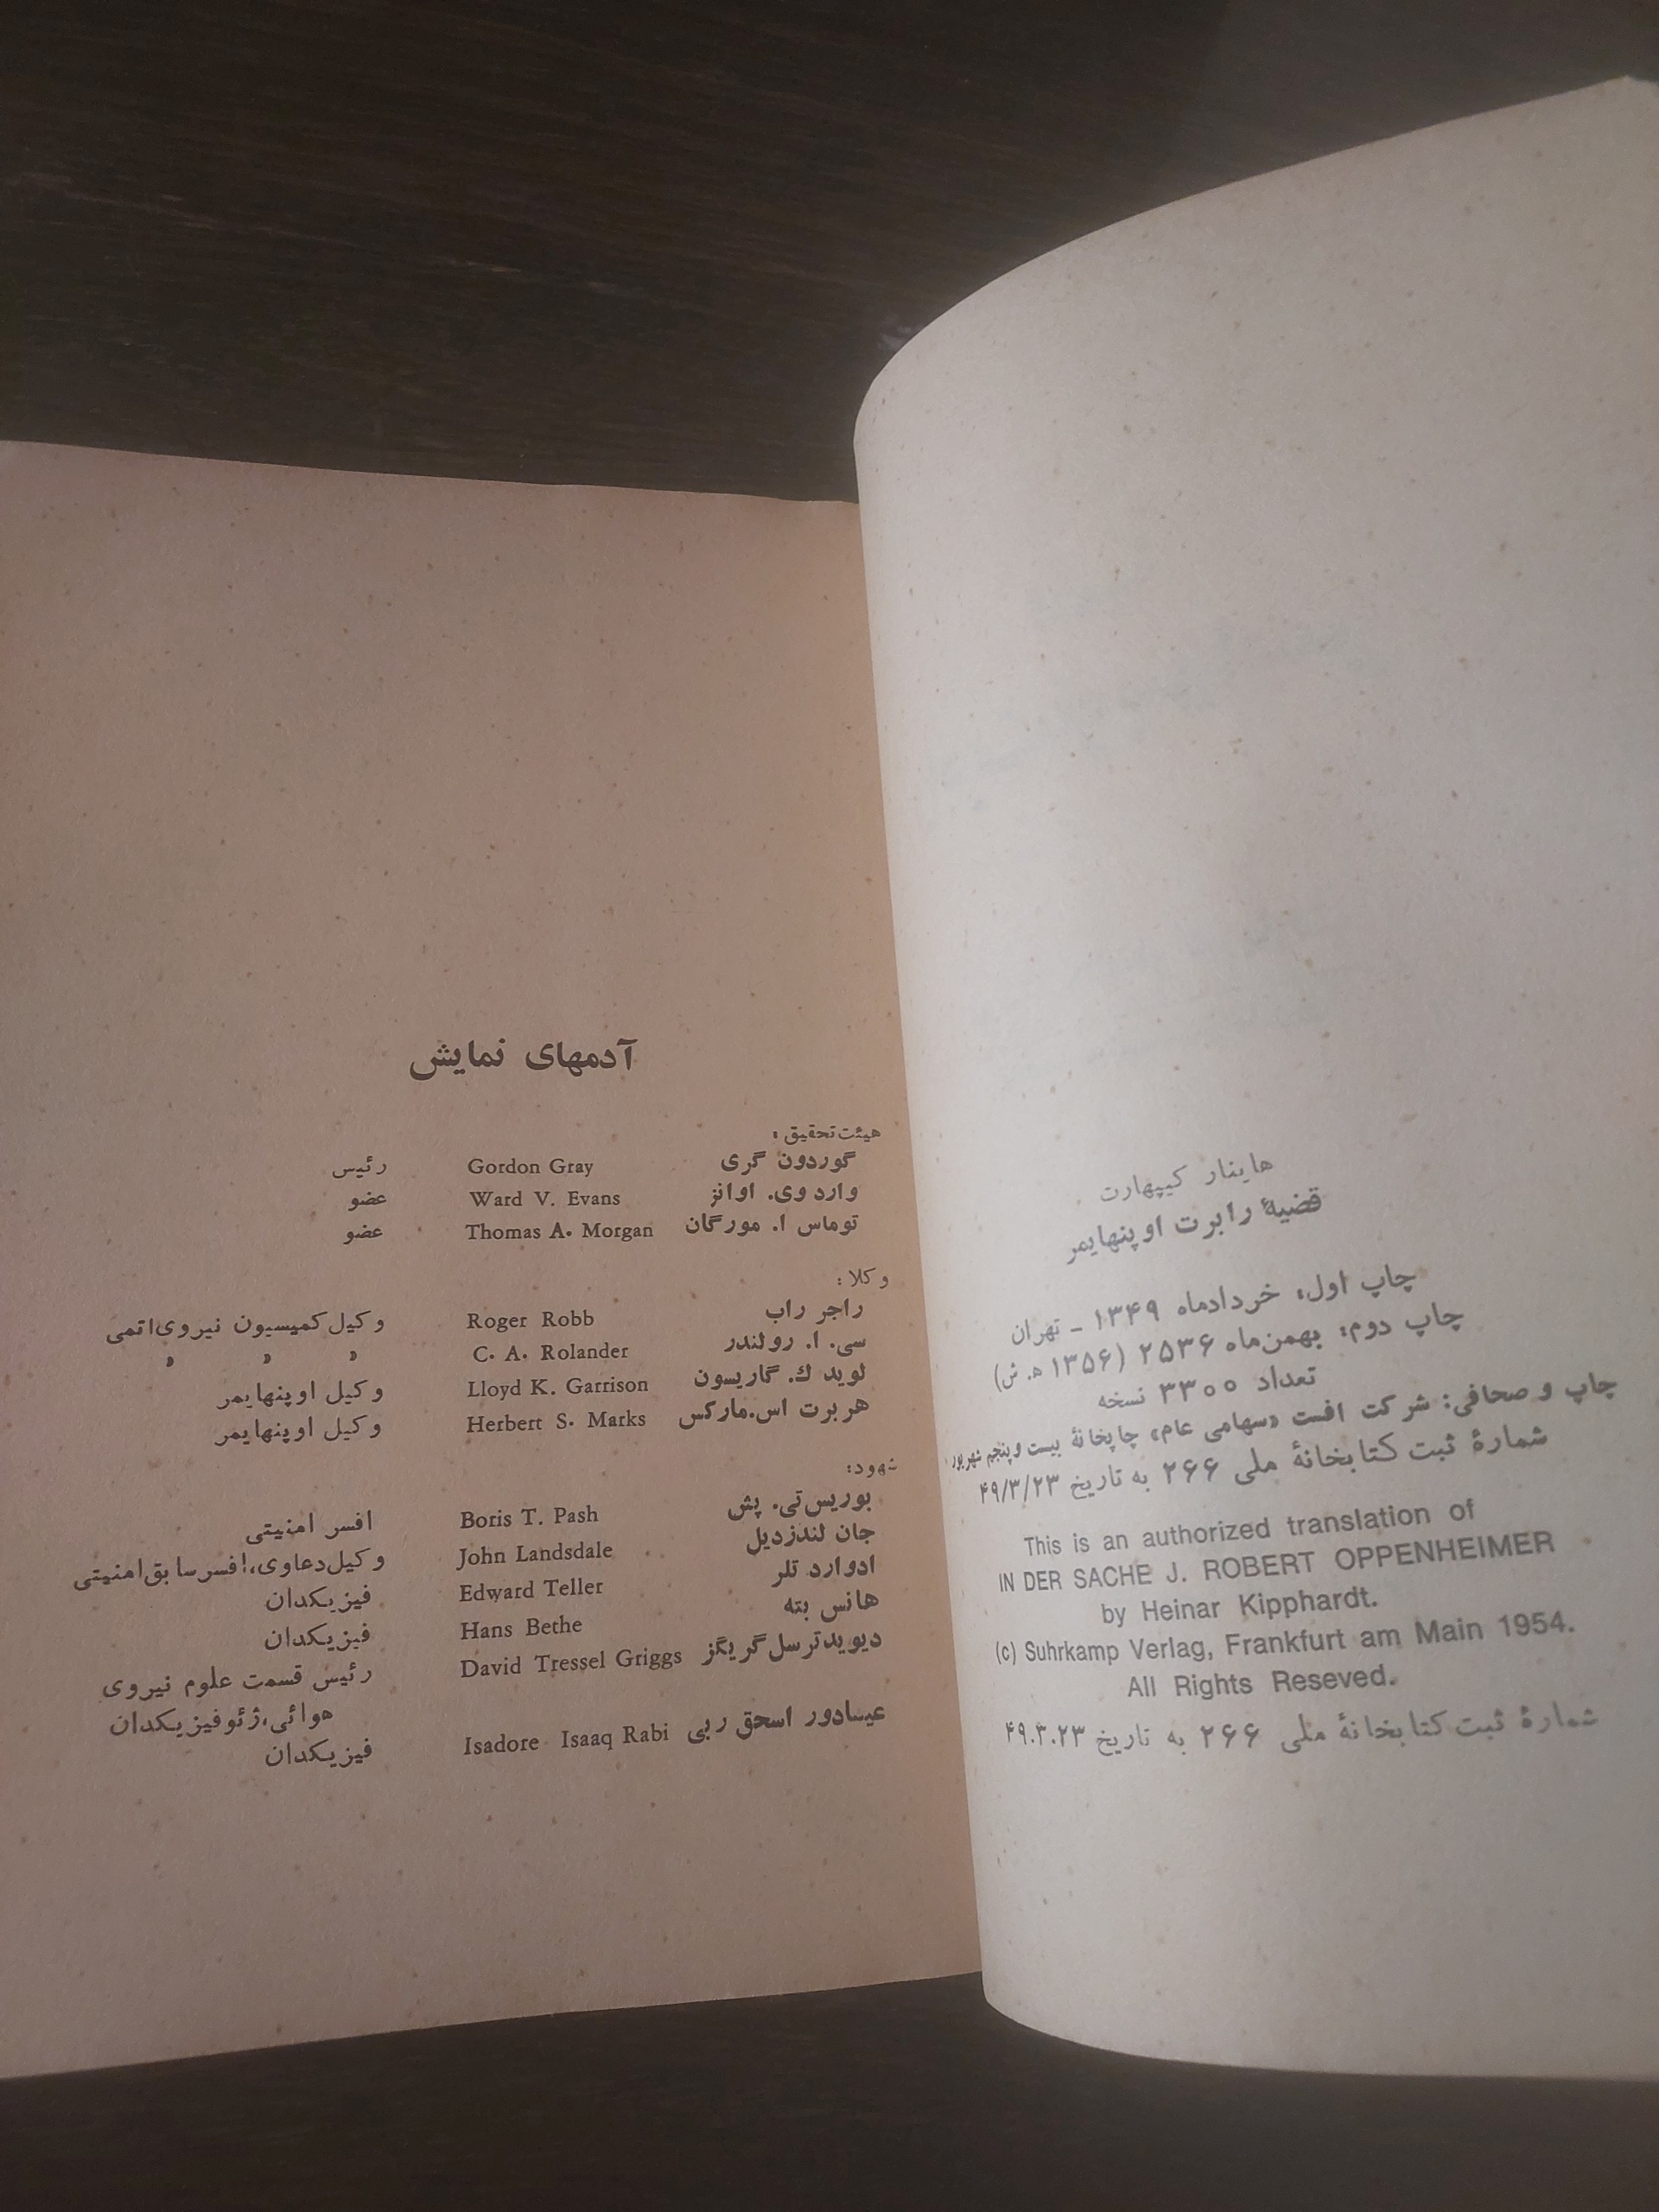 هاینار کیپهارت
قضیهٔ رابرت اوپنهایمر
چاپ اول، خردادماه ۱۳۴۹ - تهران
چاپ دوم: بهمن‌ماه ۲۵۳۶ (۱۳۵۶ ه. ش)
تعداد ۳۳۰۰ نسخه
چاپ و صحافی: شرکت افست «سهامی عام» چاپخانهٔ بیست و پنجم شهریور
شمارهٔ ثبت کتابخانهٔ ملی ۲۶۶ به تاریخ ۴۹/۳/۲۳
This is an authorized translation of
IN DER SACHE J. ROBERT OPPENHEIMER
by Heinar Kipphardt.
(c) Suhrkamp Verlag, Frankfurt am Main 1954.
All Rights Reseved.
شمارهٔ ثبت کتابخانهٔ ملی ۲۶۶ به تاریخ ۴۹.۳.۲۳
آدمهای نمایش
هیئت تحقیق:
گوردون گری Gordon Gray رئیس
وارد وی. اوانز Ward V. Evans عضو
توماس ا. مورگان Thomas A. Morgan عضو
وکلا:
راجر راب Roger Robb وکیل کمیسیون نیروی اتمی
سی. ا. رولندر C. A. Rolander » » »
لوید ك. گاریسون Lloyd K. Garrison وکیل اوپنهایمر
هربرت اس. مارکس Herbert S. Marks وکیل اوپنهایمر
شهود:
بوریس تی. پش Boris T. Pash افسر امنیتی
جان لندزدیل John Landsdale وکیل دعاوی، افسر سابق امنیتی
ادوارد تلر Edward Teller فیزیکدان
هانس بته Hans Bethe فیزیکدان
دیوید ترسل گریگز David Tressel Griggs رئیس قسمت علوم نیروی
هوائی، ژئوفیزیکدان
عیسادور اسحق ربی Isadore Isaaq Rabi فیزیکدان